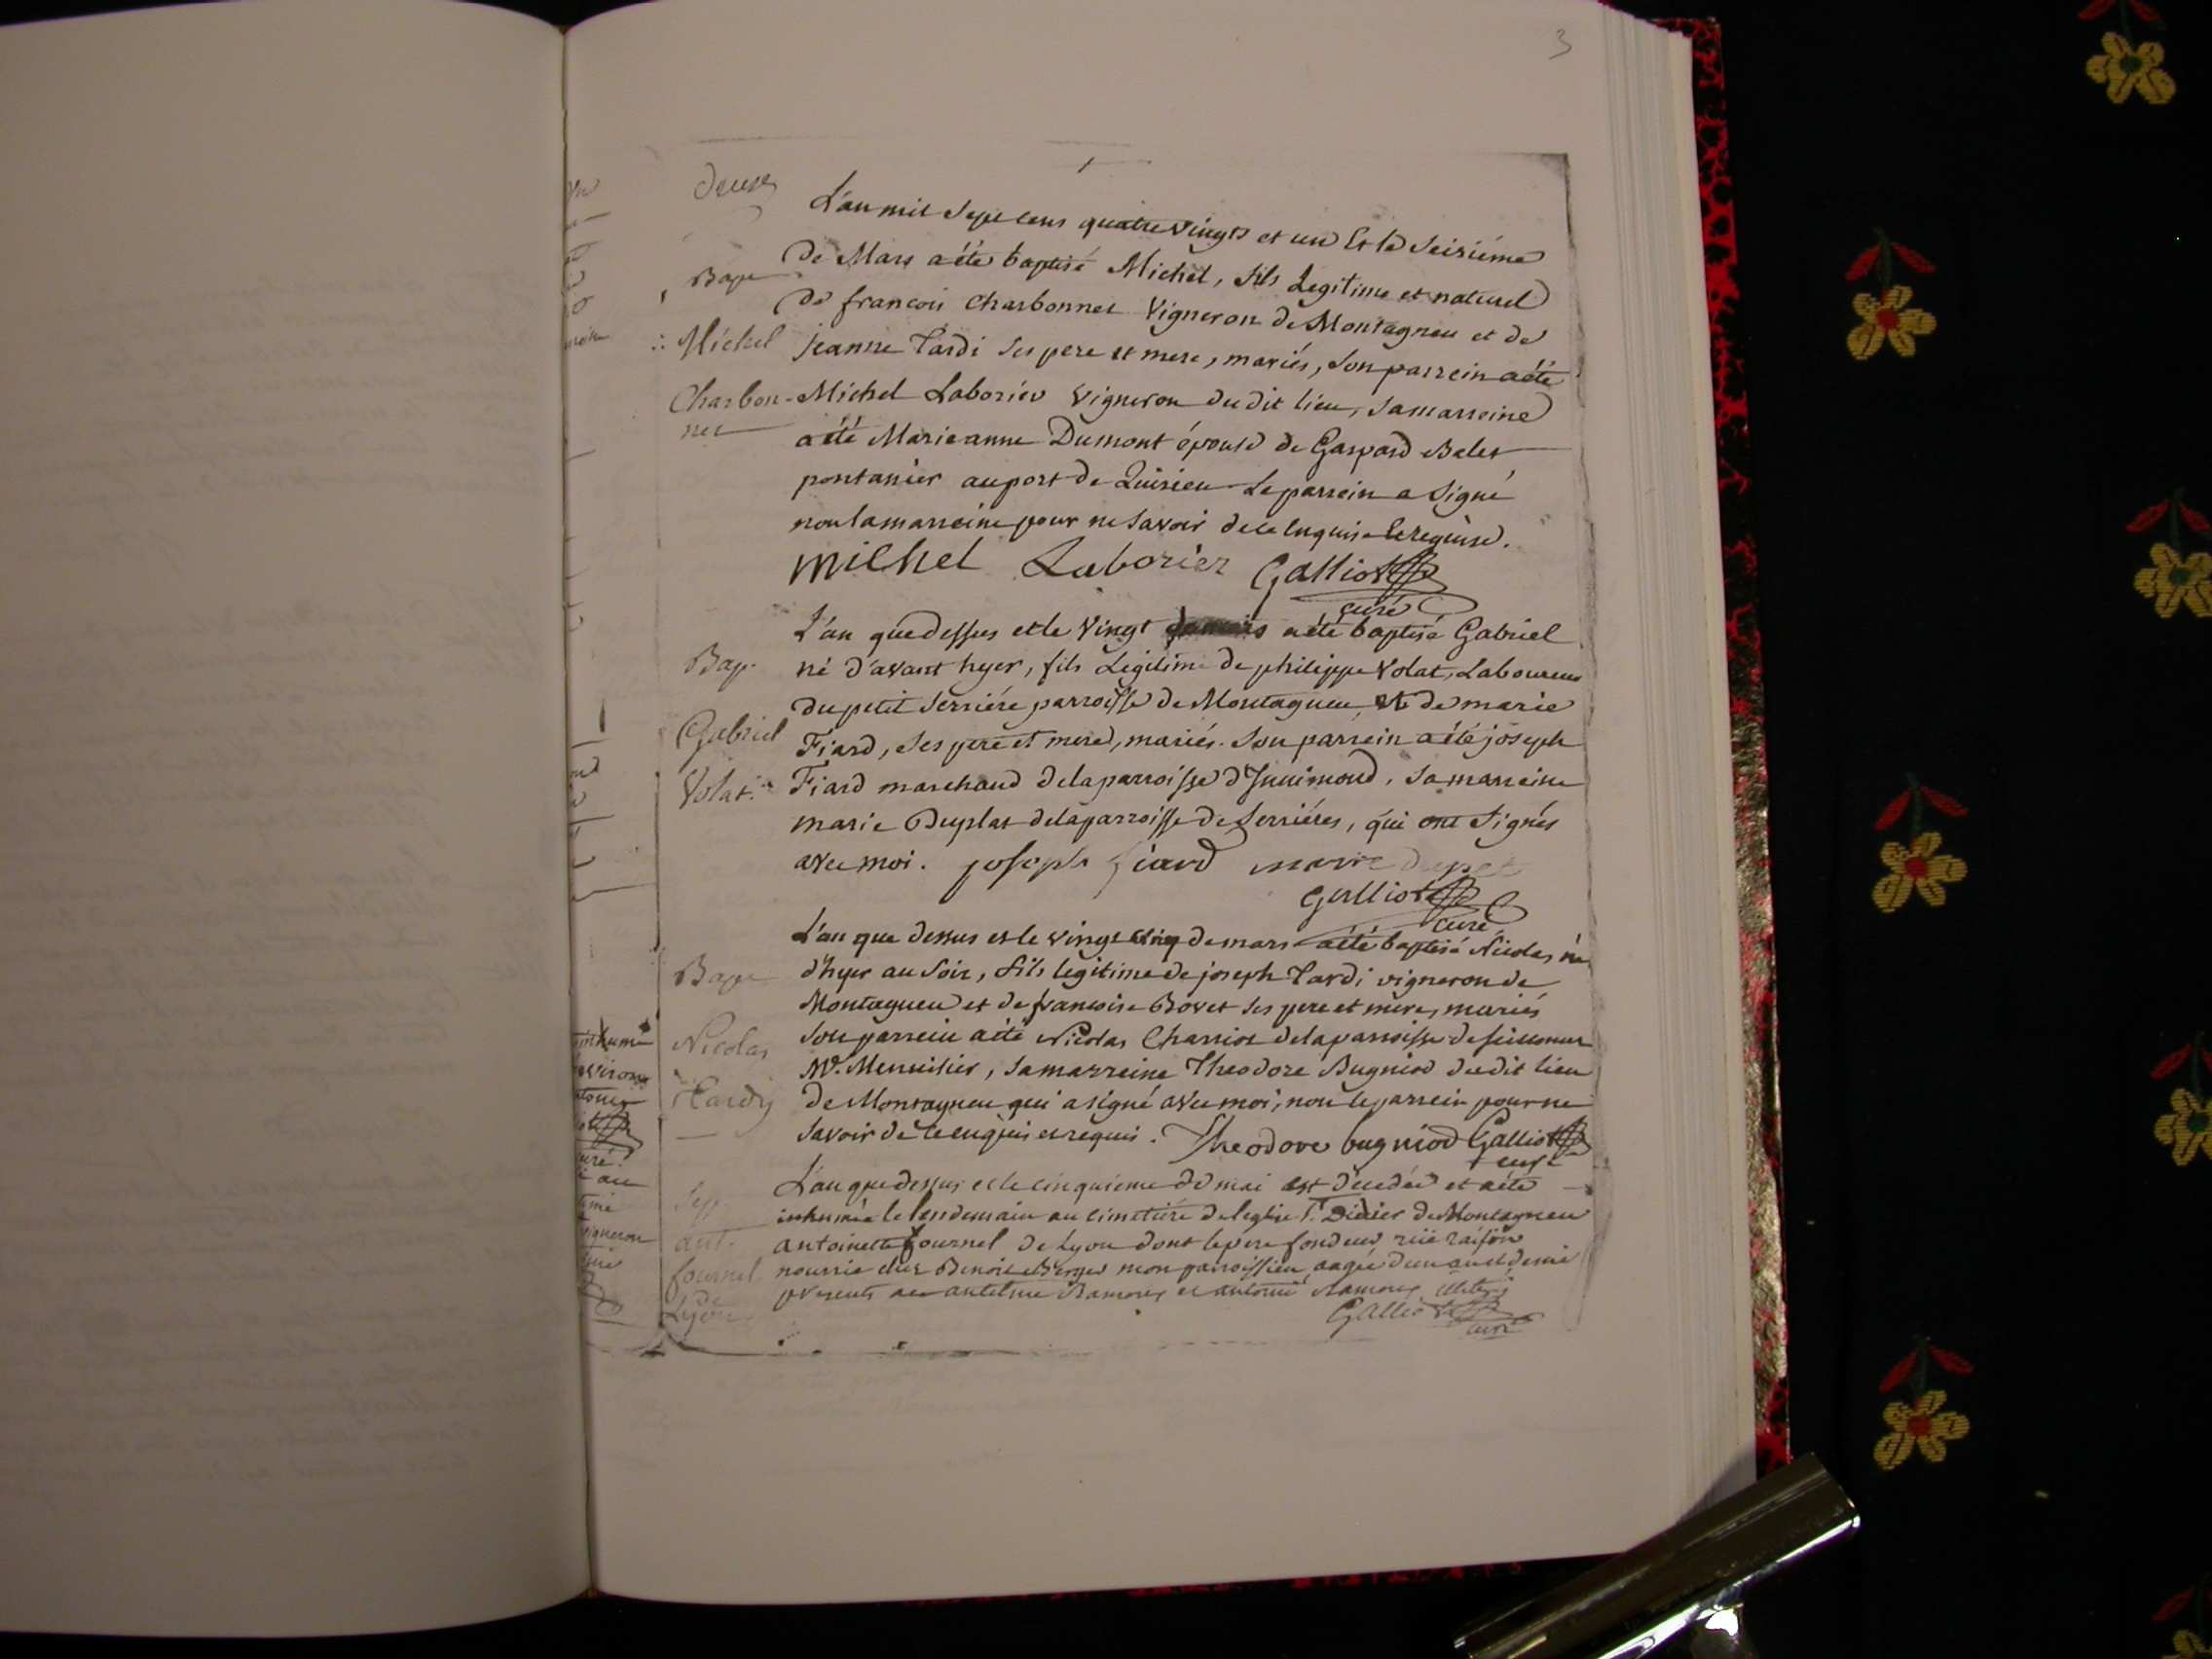 3
deux
L'an mil sept cens quatre vingts et un Et le seisiéme
Bap
de Mars a été baptisé Michel, fils Legitime et naturel
de francois Charbonnet Vigneron de Montagneu et de
Michel
jeanne Tardi ses pere et mere, mariés, son parrein a été
Charbon-
Michel Laborier Vigneron du dit lieu, sa marreine
net
a été Marie anne Dumont épouse de Gaspard Belet
pontanier au port de Quirieu Le parrein a signé
non la marreine pour ne savoir de ce enquise et requise.
Michel Laborier Galliot
curé
L'an que dessus et le vingt a été baptisé Gabriel
Bap.
né d'avant hyer, fils Legitime de philippe Volat, Laboureur
du petit serriére parroisse de Montagneu, et de marie
Gabriel
Fiard, ses pere et mere, mariés. son parrein a été joseph
Volat.
Fiard marchand de la parroisse d'Innimond, sa marreine
marie Duplat de la parroisse de Serriéres, qui ont signés
avec moi. joseph fiard marie
Galliot
curé
L'an que dessus et le vingt cinq de mars a été baptisé Nicolas né
Bap
d'hyer au soir, fils legitime de joseph Tardi vigneron de
Montagneu et de francoise Bovet ses pere et mere, mariés
Nicolas
son parrein a été Nicolas Charriot de la parroisse de
Menuisier, sa marreine Theodore Bugniod du dit lieu
Tardy
de Montagneu qui a signé avec moi, non le parrein pour ne
savoir de ce enquis et requis. Theodore bugniod Galliot
curé
L'an que dessus et le cinquieme de mai est décedée et a été
Sep.
inhumée le lendemain au cimetiére de l'eglise St. Didier de Montagneu
ant.
antoinette fournel de Lyon dont le pere fondeur rüe raisin
fournel
nourrie chez Benoit Berger mon parroissien, aagée d'un an et demi
de
presents antelme Ramoux et antoine Ramoux illiterés
Lyon
Galliot
curé